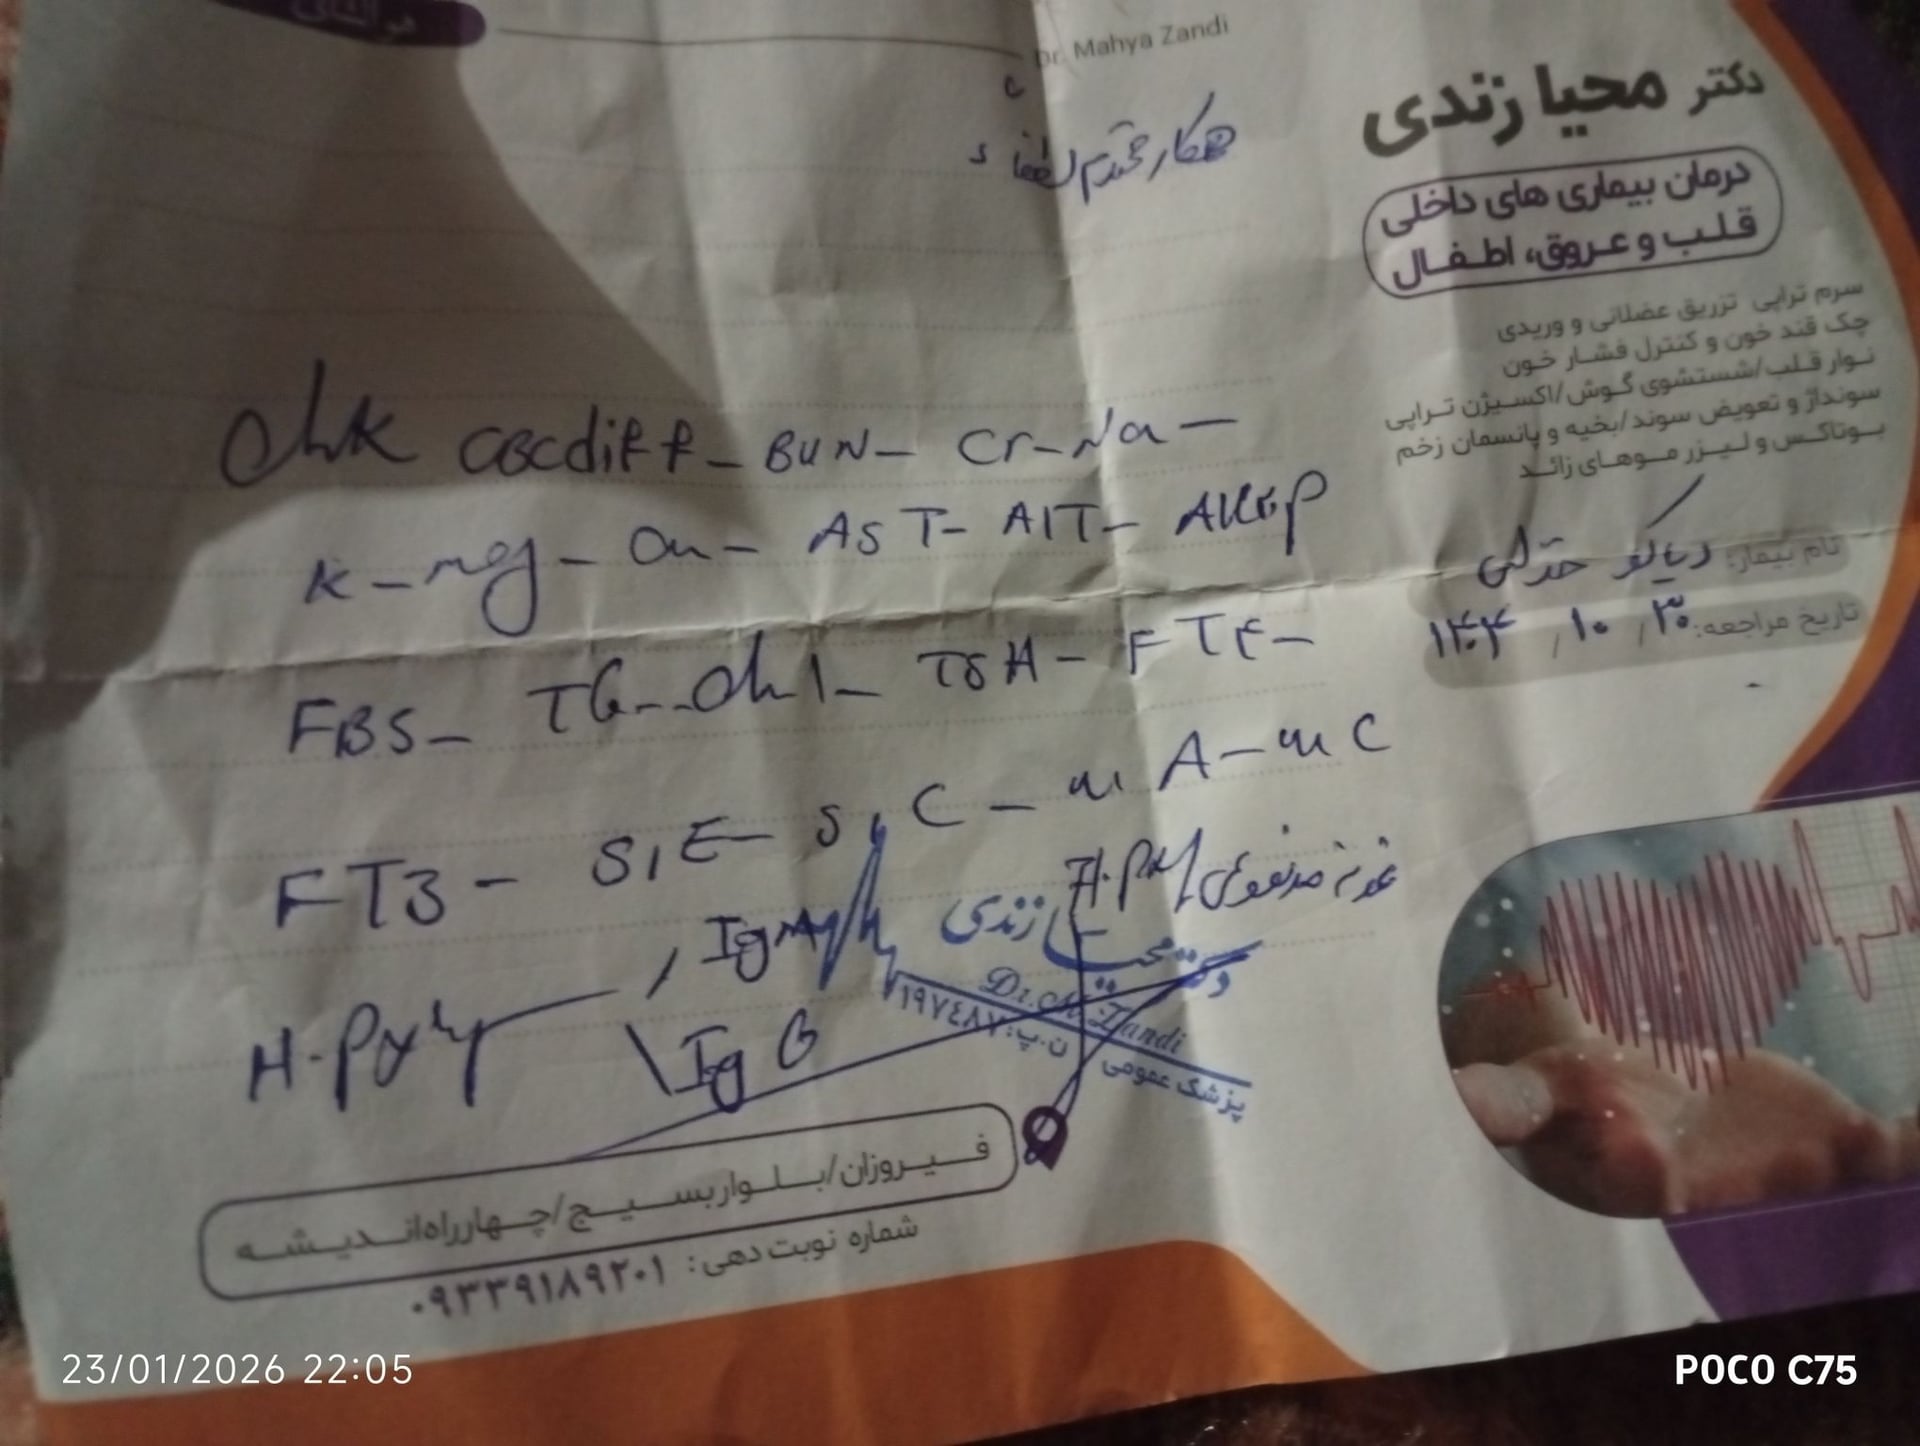 هوالشافی
Dr. Mahya Zandi
دکتر محیا زندی
درمان بیماری های داخلی
قلب و عروق، اطفال
سرم تراپی تزریق عضلانی و وریدی
چک قند خون و کنترل فشار خون
نوار قلب/شستشوی گوش/اکسیژن تراپی
سونداژ و تعویض سوند/بخیه و پانسمان زخم
بوتاکس و لیزر موهای زائد
نام بیمار: دیاکو
تاریخ مراجعه: ۱۴۰۴/۱۰/۳۰
همکار محترم لطفاً
chk CBCdiff - BUN - Cr - Na -
K - mg - Ca - AST - AlT - AlKp
FBS - TG - Chl - TSH - FT4 -
FT3 - S,E - S,C - u,A - u,C
H.pylori
H.pylori نمونه مدفوعی
, IgM
\ IgG
دکتر محیا زندی
Dr. M. Zandi
ن.پ: ۱۹۷۴۸۷
پزشک عمومی
فیروزان/بلوار بسیج/چهارراه اندیشه
شماره نوبت دهی: ۰۹۳۳۹۱۸۹۲۰۱
23/01/2026 22:05
POCO C75